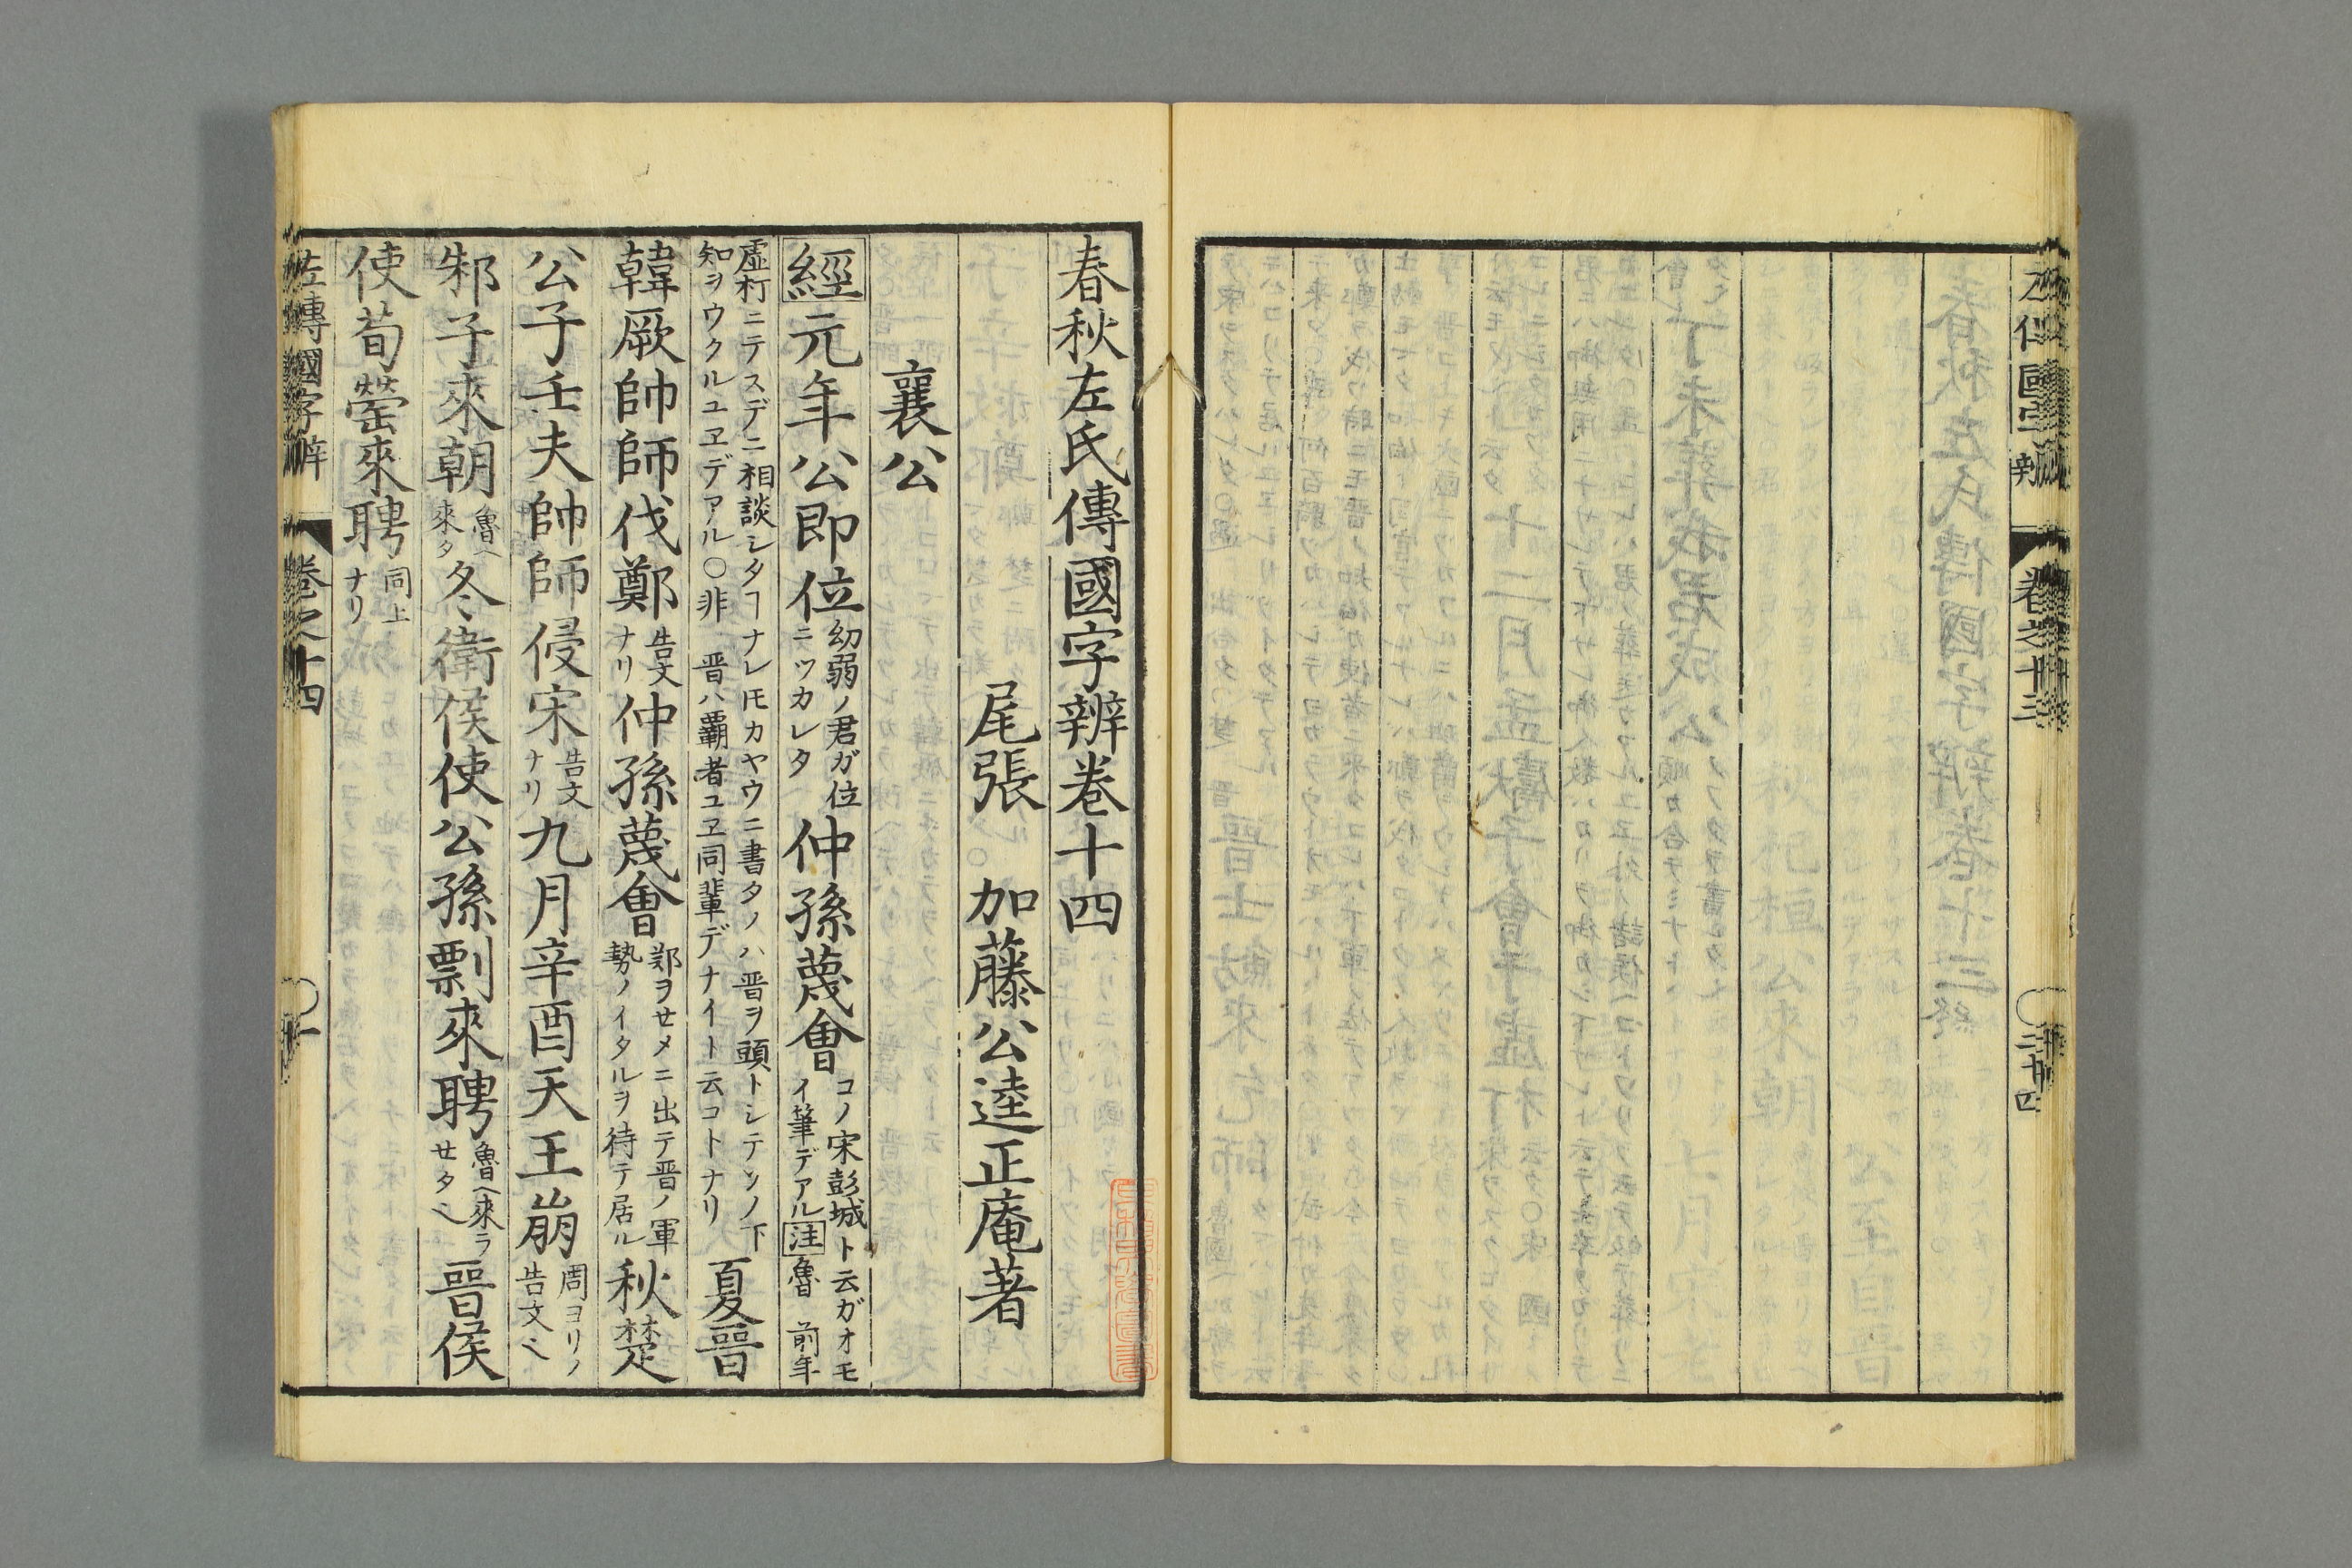 春秋左氏傳國字辨卷十四
尾張 加藤公逵正庵著
襄公
經元年公即位幼弱ノ君ガ位ニツカレタ仲孫蔑會コノ宋彭城ト云ガオモイ筆デアル注魯 前年
虛朾ニテスデニ相談シタヿナレ𪜈カヤウニ書タノハ晋ヲ頭トシテソノ下知ヲウクルユヱデアル○非 晋ハ覇者ユヱ同輩デナイト云コトナリ夏晉
韓厥帥師伐鄭告文ナリ仲孫蔑會鄭ヲセメニ出テ晋ノ軍勢ノイタルヲ待テ居ル秋楚
公子壬夫帥師侵宋告文ナリ九月辛酉天王崩周ヨリノ告文〻
邾子來朝魯ヘ來タ冬衛侯使公孫剽來聘魯ヘ來ラセタ〻晉侯
使荀罃來聘同上ナリ
左傳國字辨 卷之十四 ○一
左傳國字辨 卷之十三 ○二十四